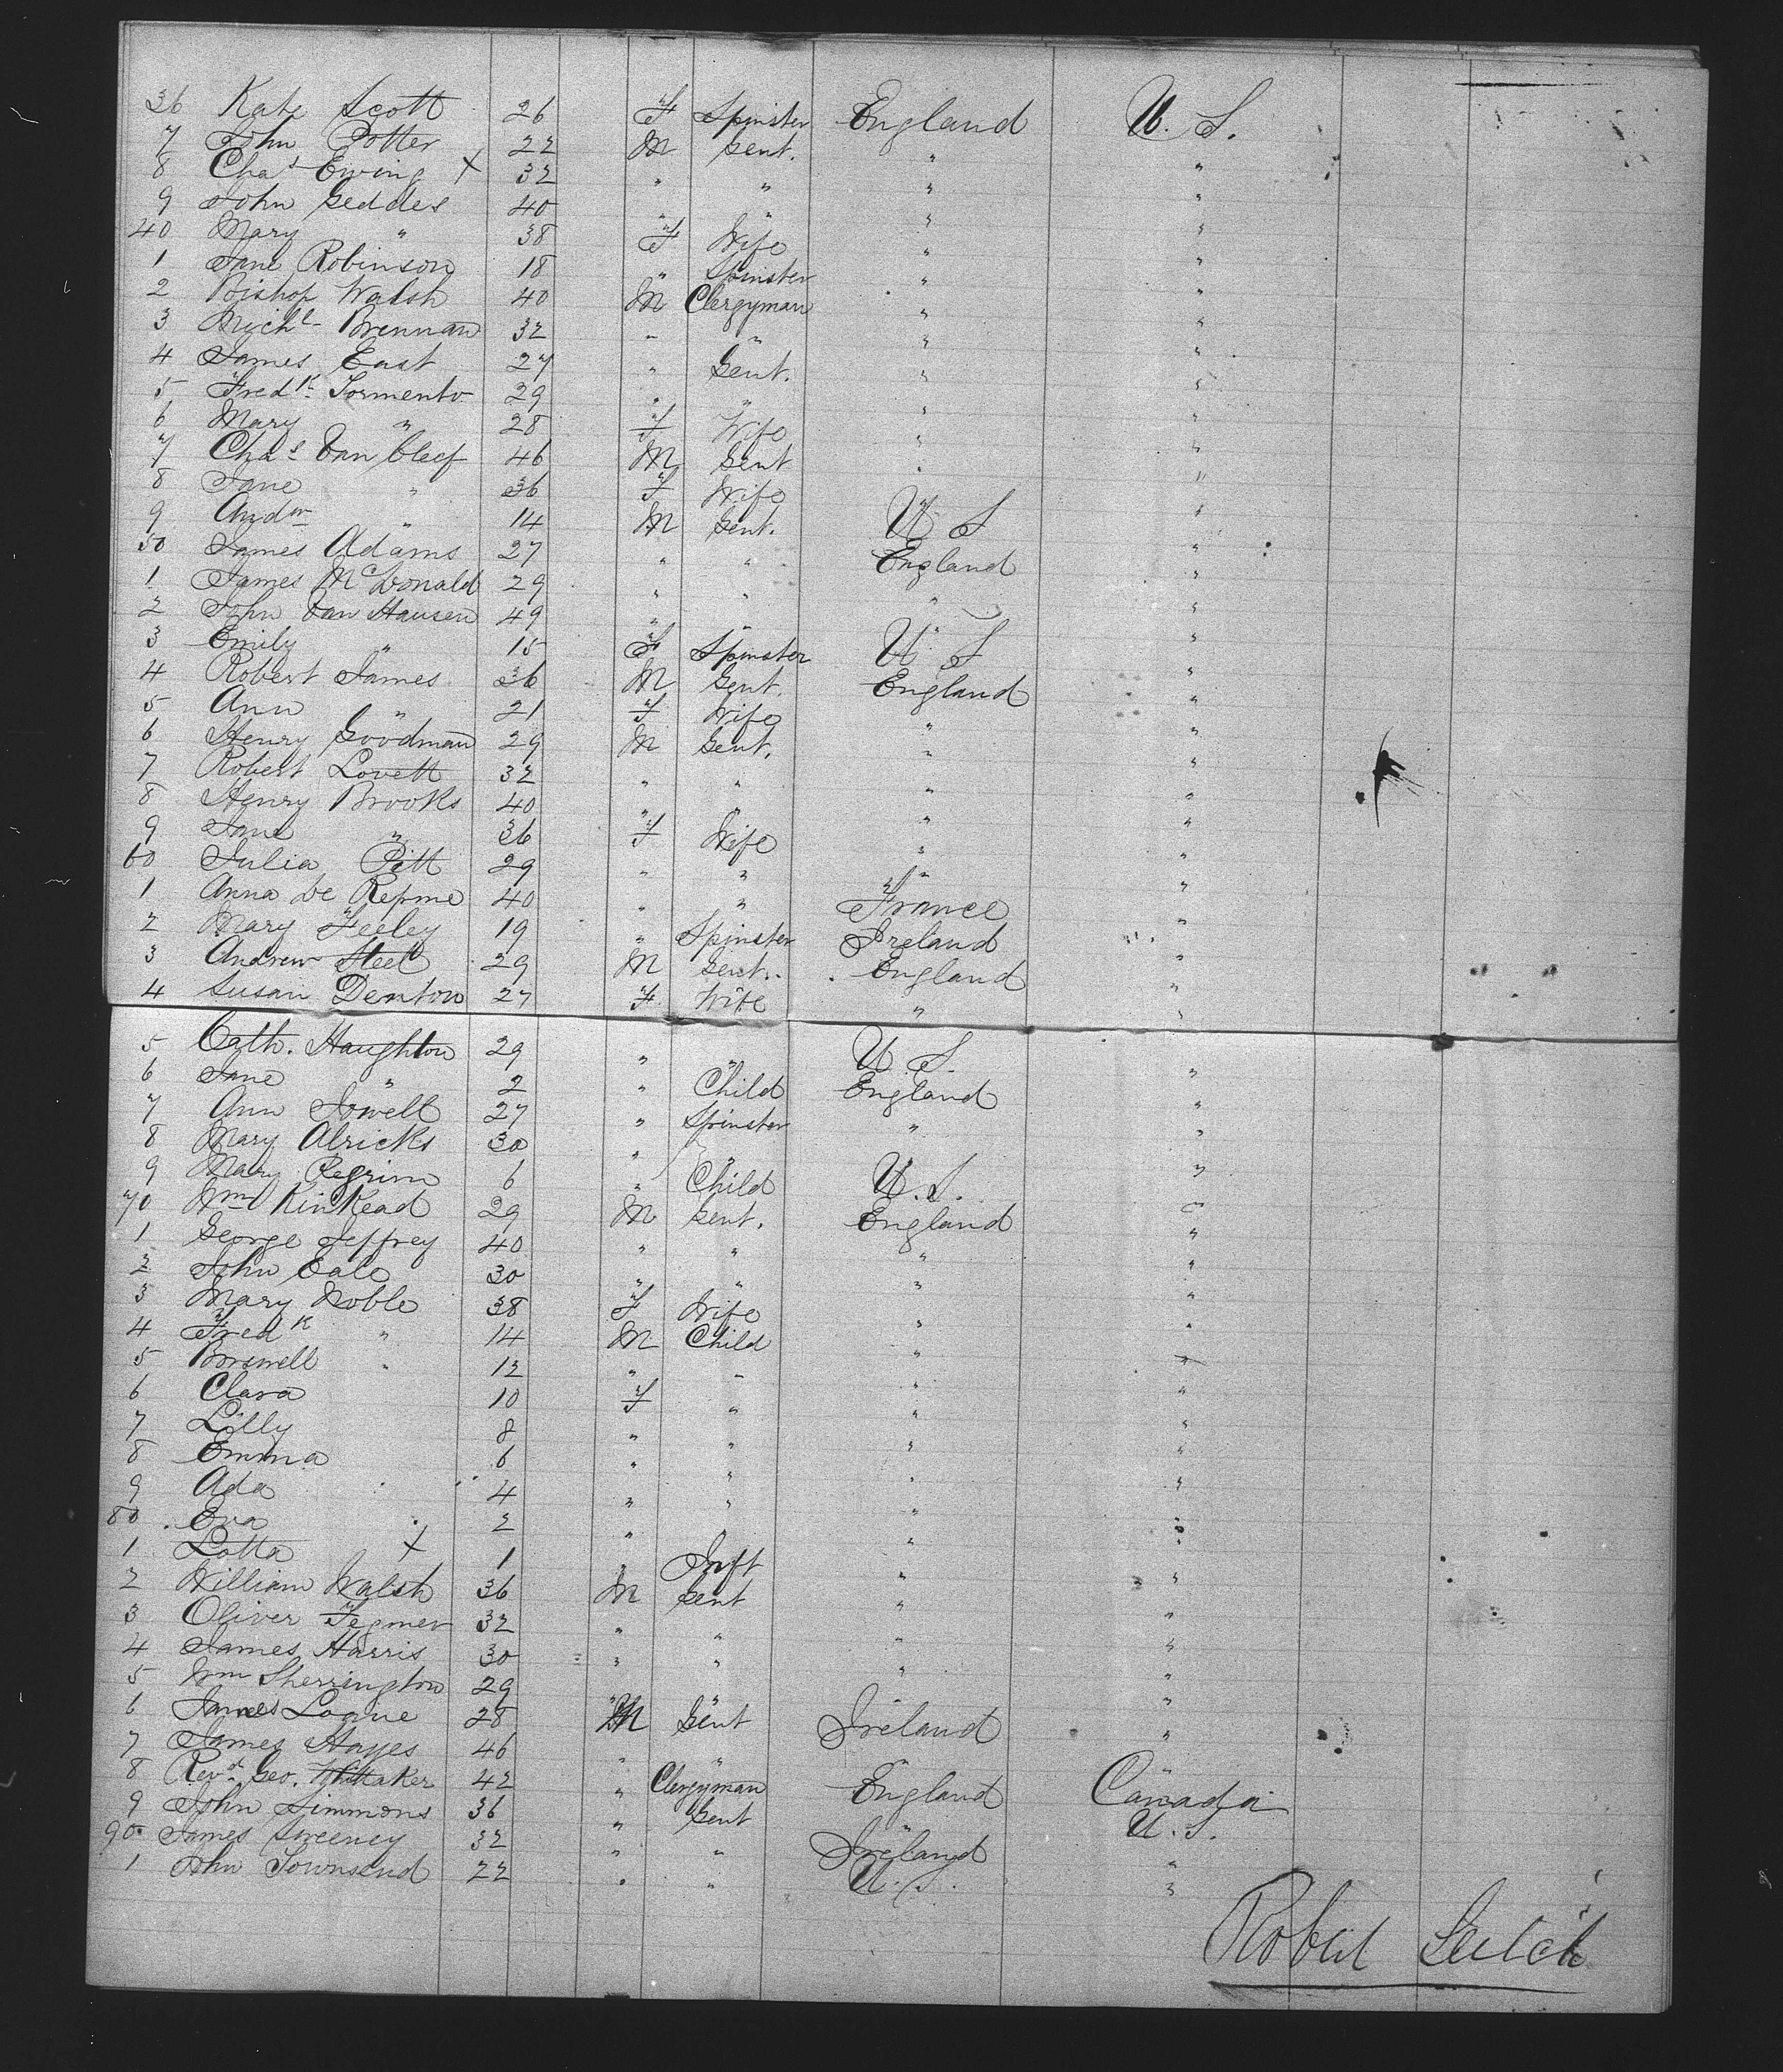 36 Kate Scott 26 F Spinster England U. S.
7 John Potter 22 M Gent. " "
8 Chas Ewing X 32 " " " "
9 John Geddes 40 " " " "
40 Mary " 38 F Wife " "
1 Jane Robinson 18 " Spinster " "
2 Bishop Walsh 40 M Clergyman " "
3 Michl Brennan 32 " " " "
4 James East 27 " Gent. " "
5 Fredk Tormento 29 " " " "
6 Mary " 28 F Wife " "
7 Chas Van Cleef 46 M Gent " "
8 Jane " 36 F Wife "
9 Andw " 14 M Gent. U S "
50 James Adams 27 " " England "
1 James McDonald 29 " " " "
2 John Van Hausen 49 " "
3 Emily " 15 F Spinster U S "
4 Robert James 36 M Gent. England "
5 Ann " 21 F Wife " "
6 Henry Goodman 29 M Gent. " "
7 Robert Lovett 32 " " " "
8 Henry Brooks 40 " " " "
9 Jane " 36 F Wife " "
60 Julia Pitt 29 " " " "
1 Anna De 40 " " France "
2 Mary Feeley 19 " Spinster Ireland "
3 Andrew Steel 29 M Gent. England "
4 Susan Denton 27 F Wife " "
5 Cath. Haughton 29 " " U. S. "
6 Jane " 2 " Child England "
7 Ann Jowell 27 " Spinster " "
8 Mary Alricks 30 " " "
9 Mary Pegrim 6 " Child U. S. "
70 Wm Kinkead 29 M Gent. England "
1 George Jeffrey 40 " " " "
2 John Cale 30 " " " "
3 Mary Noble 38 F Wife " "
4 Fredk " 14 M Child " "
5 " 12 " " " "
6 Clara 10 F " " "
7 Lilly 8 " " " "
8 Emma 6 " " " "
9 Ada 4 " " " "
80 Eva 2 " " " "
1 Lotta X 1 " Inft " "
2 William Walsh 36 M Gent " "
3 Oliver Fegmer 32 " " " "
4 James Harris 30 " " " "
5 Wm Sherrington 29 " " "
6 James Logue 28 M Gent Ireland "
7 James Hayes 46 " " "
8 Revd Geo. Whittaker 42 " Clergyman England Canada
9 John Simmons 36 " Gent " U. S.
90 James Sweeney 32 " " Ireland "
1 John Townsend 22 " " U. S. "
Robert Leitch